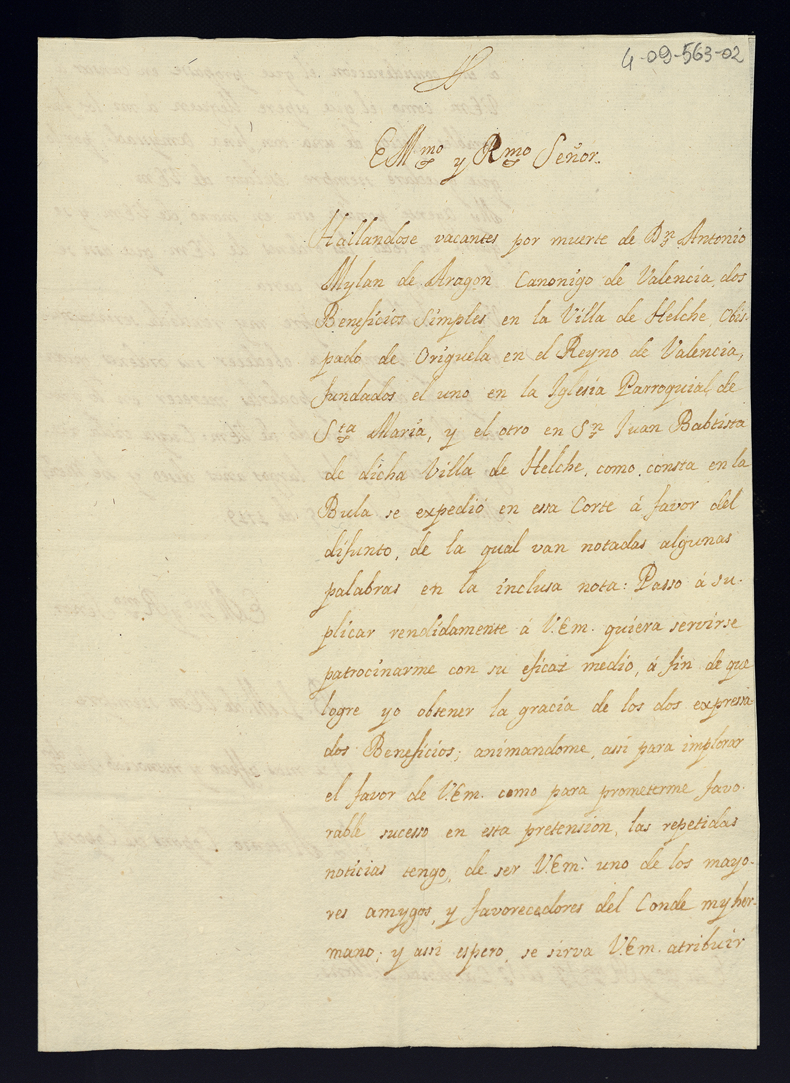 4-09-563-02
EM.mo y Rmo Señor.
Hallandose vacantes por muerte de Dn. Antonio
Mylan de Aragon Canonigo de Valencia, dos
Beneficios Simples en la Villa de Helche, Obis-
pado de Origuela en el Reyno de Valencia,
fundados el uno en la Iglesia Parroquial de
Sta Maria, y el otro en Sn. Juan Babtista
de dicha Villa de Helche, como consta en la
Bula se expedió en esta Corte á favor del
difunto, de la qual van notadas algunas
palabras en la inclusa nota: Passo á su-
plicar rendidamente á V.Em. quiera servirse
patrocinarme con su eficaz medio, á fin de que
logre yo obtener la gracia de los dos expressa
dos Beneficios; animandome, assi para implorar
el favor de V.Em. como para prometerme favo-
rable sucesso en esta pretension, las repetidas
noticias tengo, de ser V.Em. uno de los mayo-
res amygos, y favorecedores del Conde my her-
mano; y assi espero, se sirva V.Em. atribuir